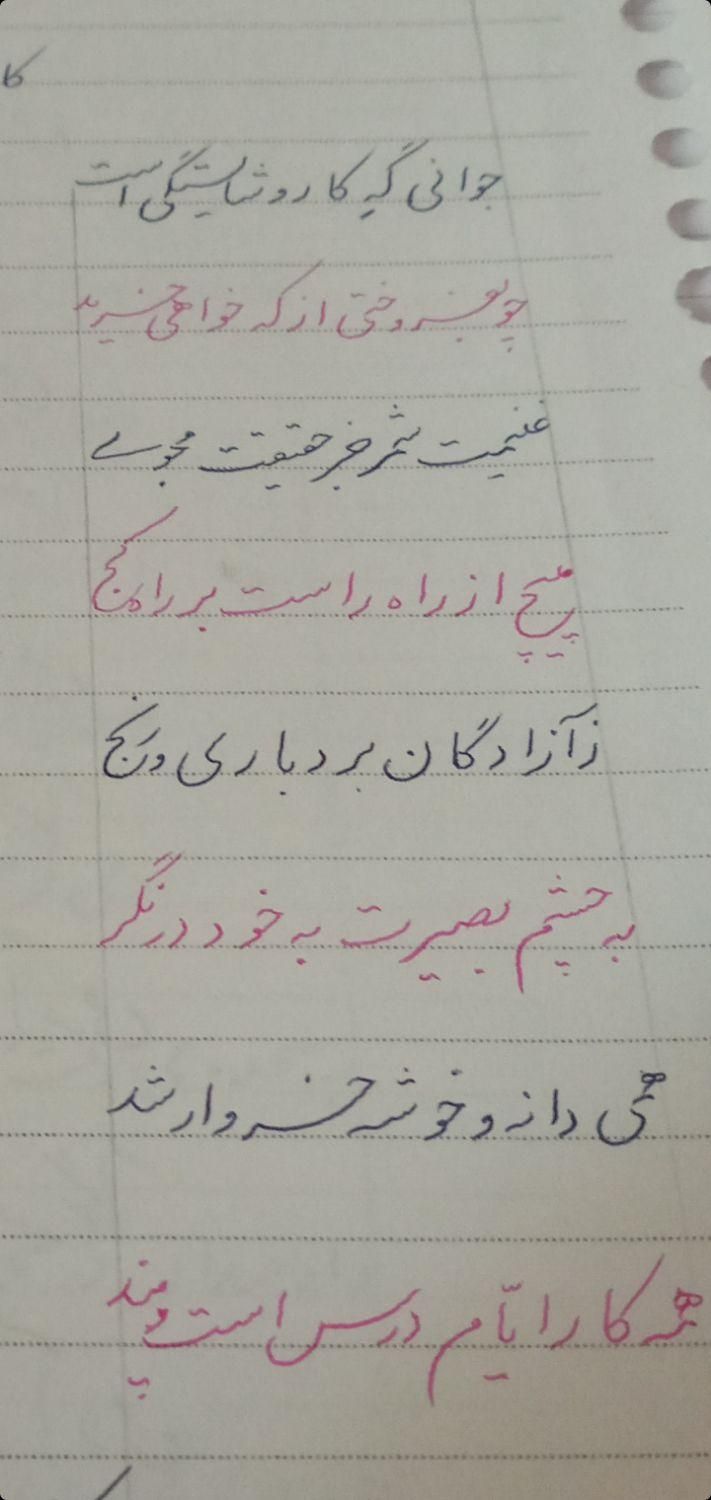 کا
جوانی گه کار و شایستگی است
چو بفروختی از که خواهی خرید
غنیمت شمر جز حقیقت مجوی
مپیچ از راه راست بر راه کج
ز آزادگان بردباری و رنج
به چشم بصیرت به خود در نگر
همی دانه و خوشه خروار شد
همه کار ایّام درس است و پند